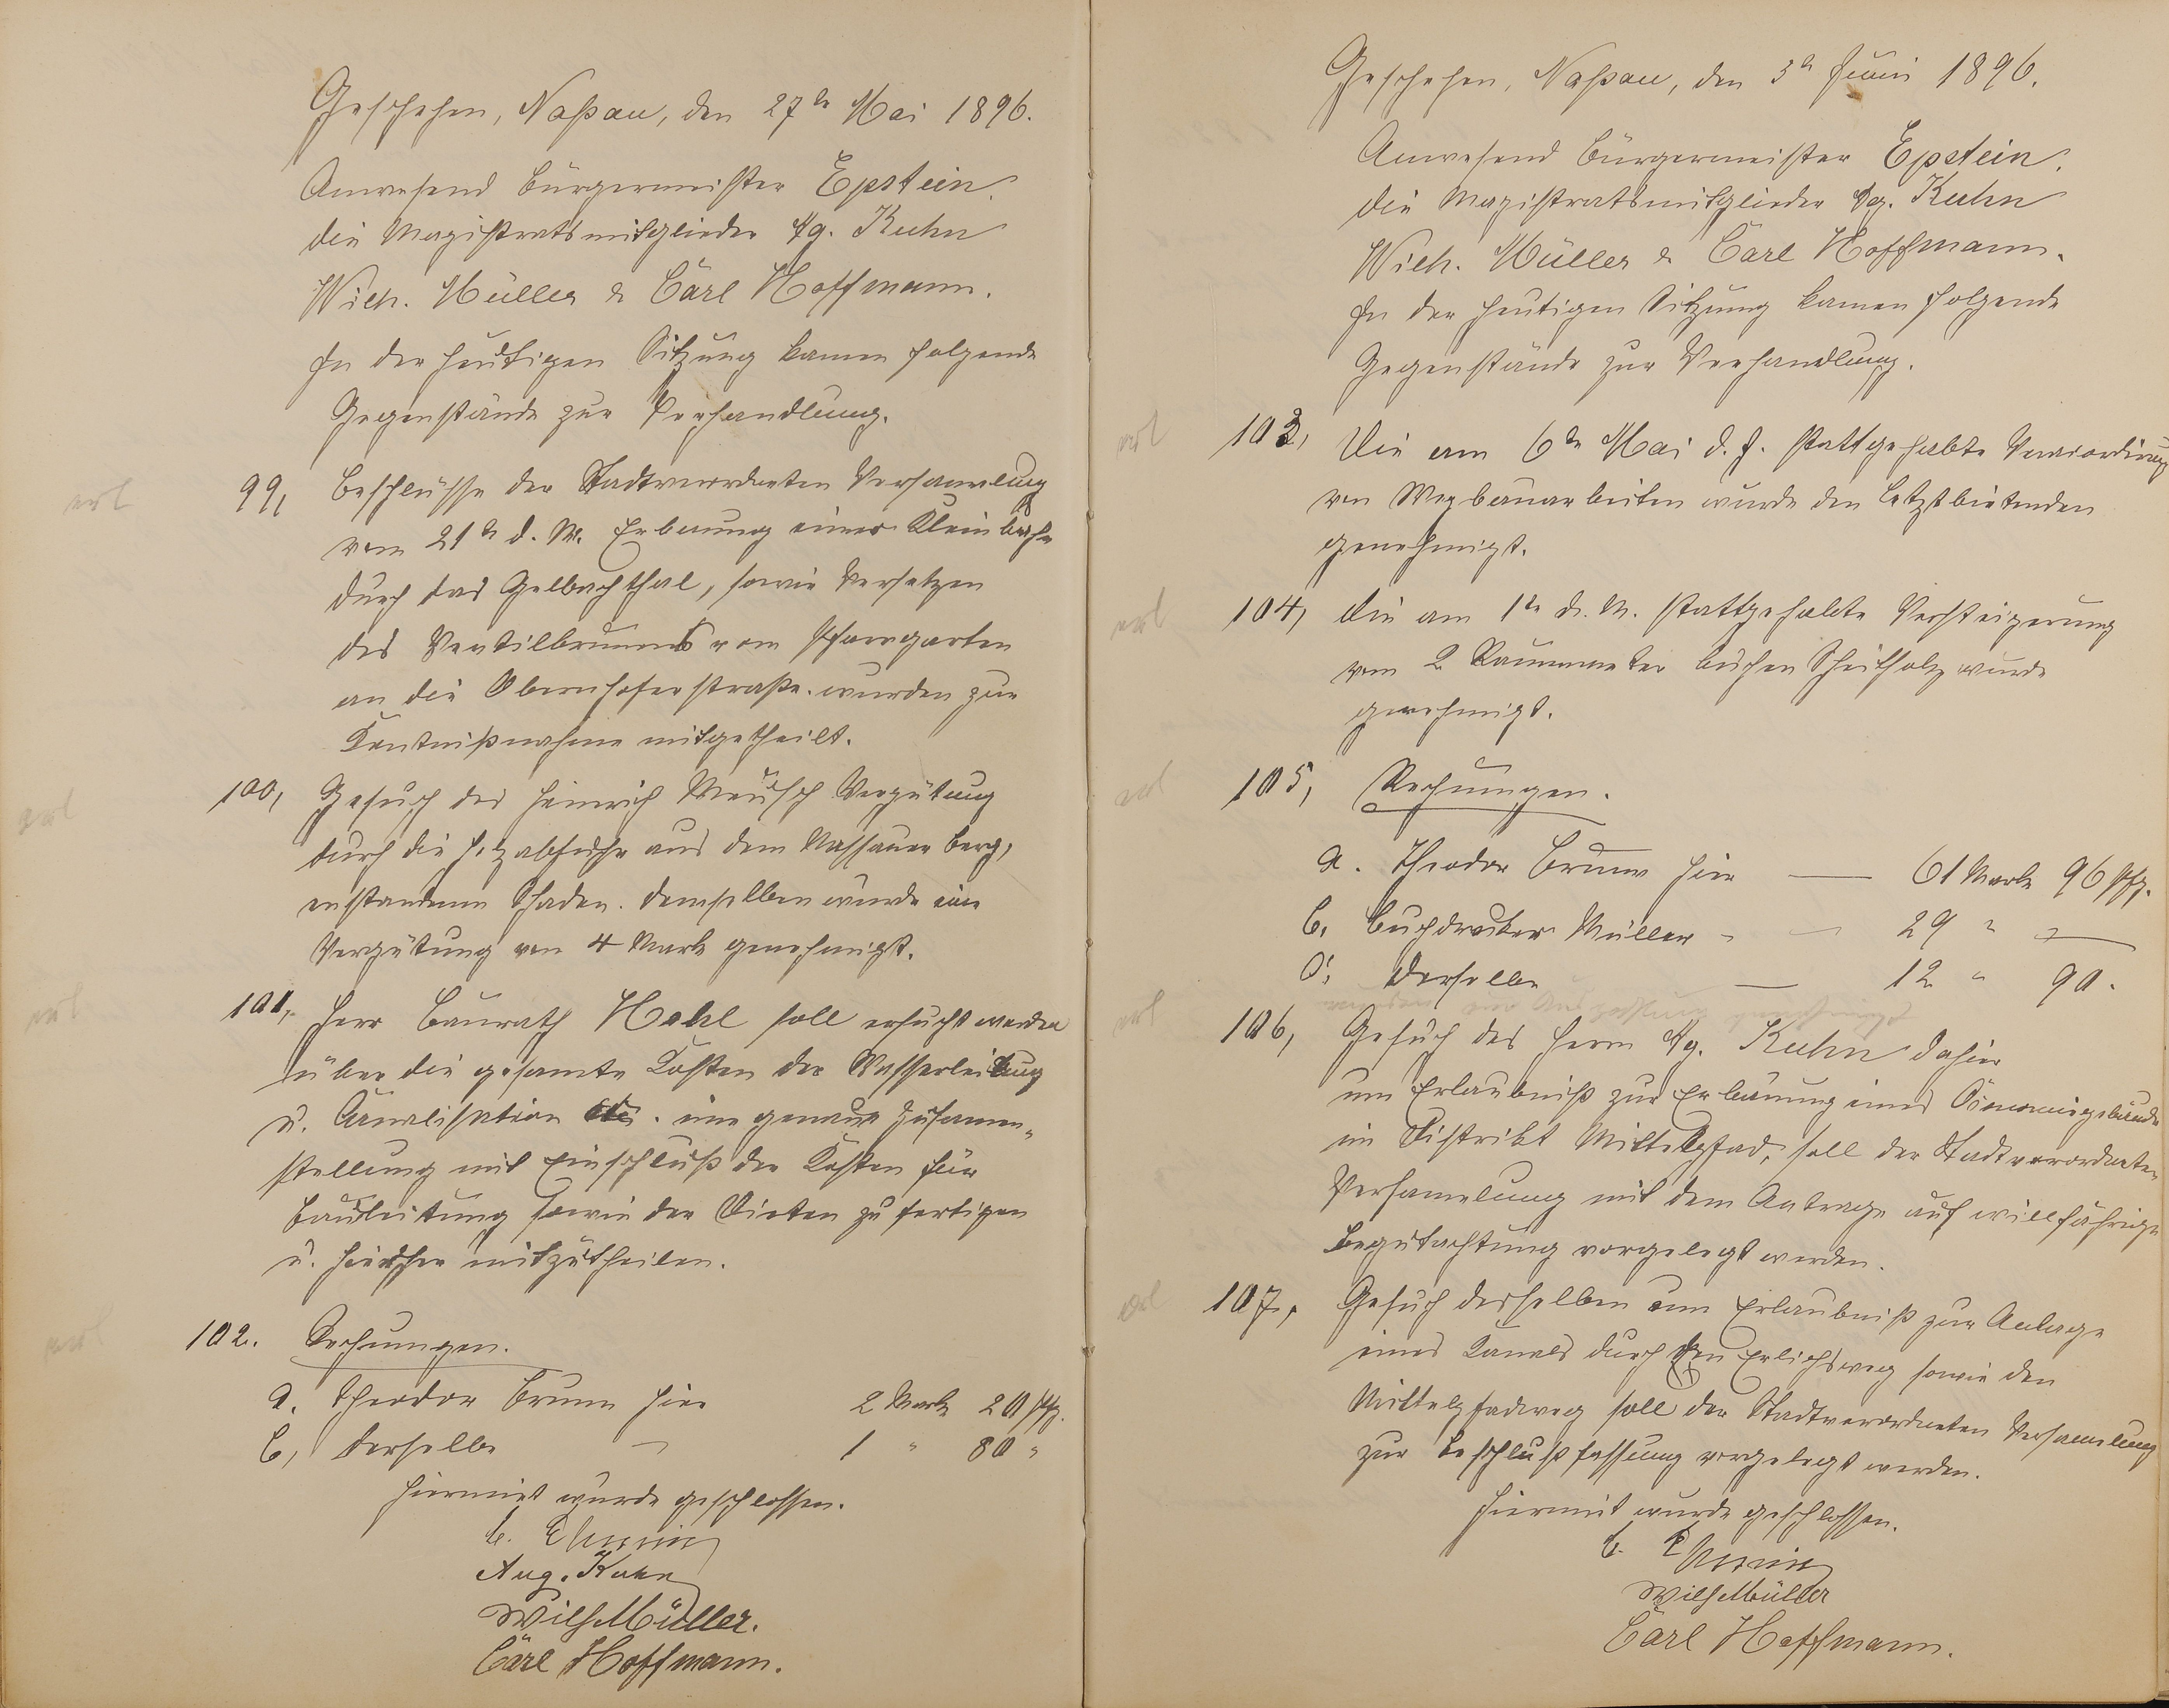 Geschehen, Naßau, den 27ten Mai 1896.
Anwesend Bürgermeister Epstein.
die Magistratsmitglieder Ag. Kuhn
Wilh. Müller & Carl Hoffmann.
In der heutigen Sitzung kamen folgende
Gegenstände zur Verhandlung.
erl
99, Beschlüsse der Stadtverordneten Versamlung
vom 21ten d. M. Erbauung einer Kleinbahn
durch das Gelbachthal, sowie Versetzen
des Ventilbrunnens vom Pfarrgarten
an die Obernhoferstraße wurden zur
Kentnißnahme mitgetheilt.
erl
100, Gesuch des Heinrich Meusch Vergütung
durch die Holzabfuhr aus dem Nassauer Berg,
enstandenen Schaden. Demselben wurde eine
Vergütung von 4 Mark genehmigt.
erl
101, Herr Baurath Hehl soll ersucht werden
über die gesamte Kosten der Wasserleitung
u. Canalisation etc. eine genaue Zusamen-
stellung mit Einschluß der Kosten für
Bauleitung sowie der Diäten zu fertigen
u. hierher mitzutheilen.
erl
102. Rechnungen.
a. Theodor Brunn hier 2 Mark 20 Pfg.
b, Derselbe — 1 " 80 "
Hiermit wurde geschlossen.
C. Epstein
Aug. Kuhn
Wilh Müller.
Carl Hoffmann.
Geschehen, Naßau, den 3ten Juni 1896.
Anwesend Bürgermeister Epstein.
die Magistratsmitglieder Ag. Kuhn
Wilh. Müller & Carl Hoffmann.
In der heutigen Sitzung kamen folgende
Gegenstände zur Verhandlung.
erl
103, Die am 6ten Mai d. J. stattgehabte Veraccordirung
von Wegbauarbeiten wurde den Letztbietenden
genehmigt.
erl
104, Die am 1ten d. M. stattgehabte Versteigerung
von 2 Raummeter buchen Scheitholz wurde
genehmigt.
erl
105, Rechnungen.
a. Theodor Brunn hier — 61 Mark 96 Pfg.
b. Buchdrucker Müller - — 29 " —
c. Derselbe — 12 " 90.
erl
106, Gesuch des Herrn Ag. Kuhn dahier
um Erlaubniß zur Erbauung eines Öconomiegebäudes
im Distrikt Mittelpfad, soll der Stadtverordneten-
Versamelung mit dem Antrage auf willfährige
Begutachtung vorgelegt werden.
erl
107, Gesuch desselben um Erlaubniß zur Anlage
eines Kanals durch den Erlichsweg sowie den
Mittelpfadweg soll der Stadtverordneten Versamelung
zur Beschlußfassung vorgelegt werden.
Hiermit wurde geschlossen.
C. Epstein
Wilh Müller
Carl Hoffmann.